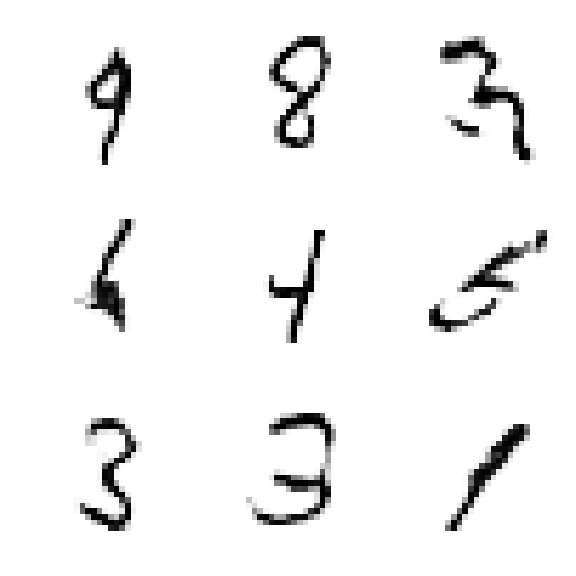 9 8 3
4 5
3 3 1